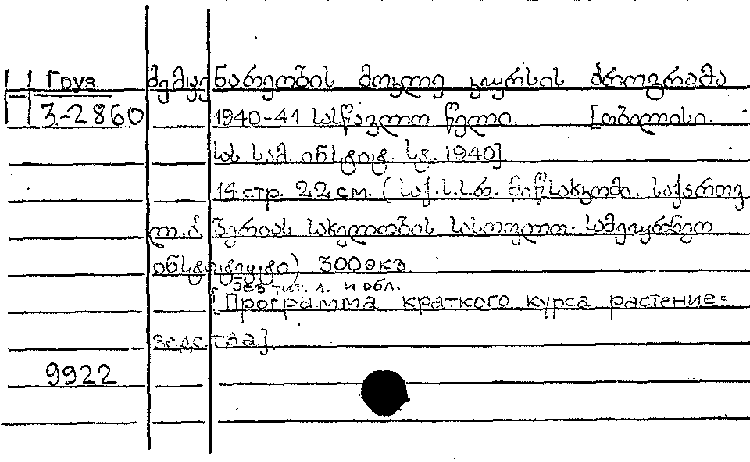 Груз მემცენარეობის მოკლე კურსის პროგრამა
3-2860 1940-41 სასწავლო წელი. [თბილისი.
სას. სამ. ინსტიტ. სტ. 1940]
14 стр. 22 см. (საქ.ს.ს.რ. მიწსახკომი. საქართვ
ლ. პ. ბერიას სახელობის სასოფლო-სამეურნეო
ინსტიტუტი) 300 экз.
Без тит. л. и обл.
[Программа краткого курса растение-
водства].
9922